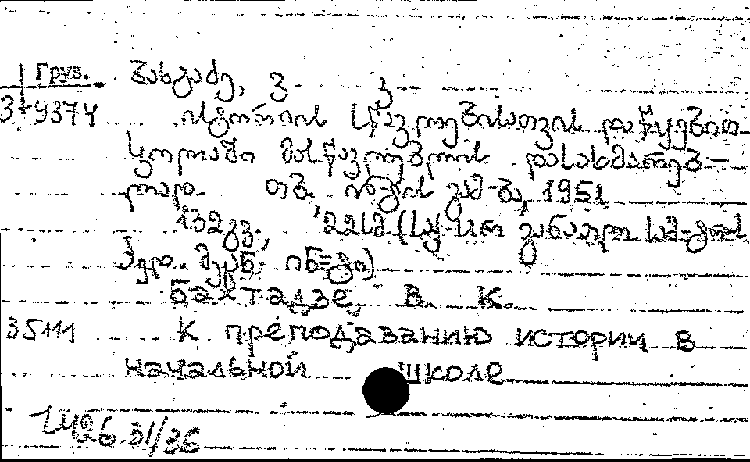 Груз.
ბახტაძე, ვ. კ.
37937ч
ისტორიის სწავლებისათვის დაწყებით
სკოლაში მასწავლებლის დასახმარებ-
ლად. თბ. ინ-ტის გამ-ბა, 1951
132გვ., 22სმ (საქ. სსრ განათლ. სამ-ტროს
პედ. მეცნ. ინ-ტი)
Бахтадзе, В. К.
35111 К преподаванию истории в
начальной школе
31/36